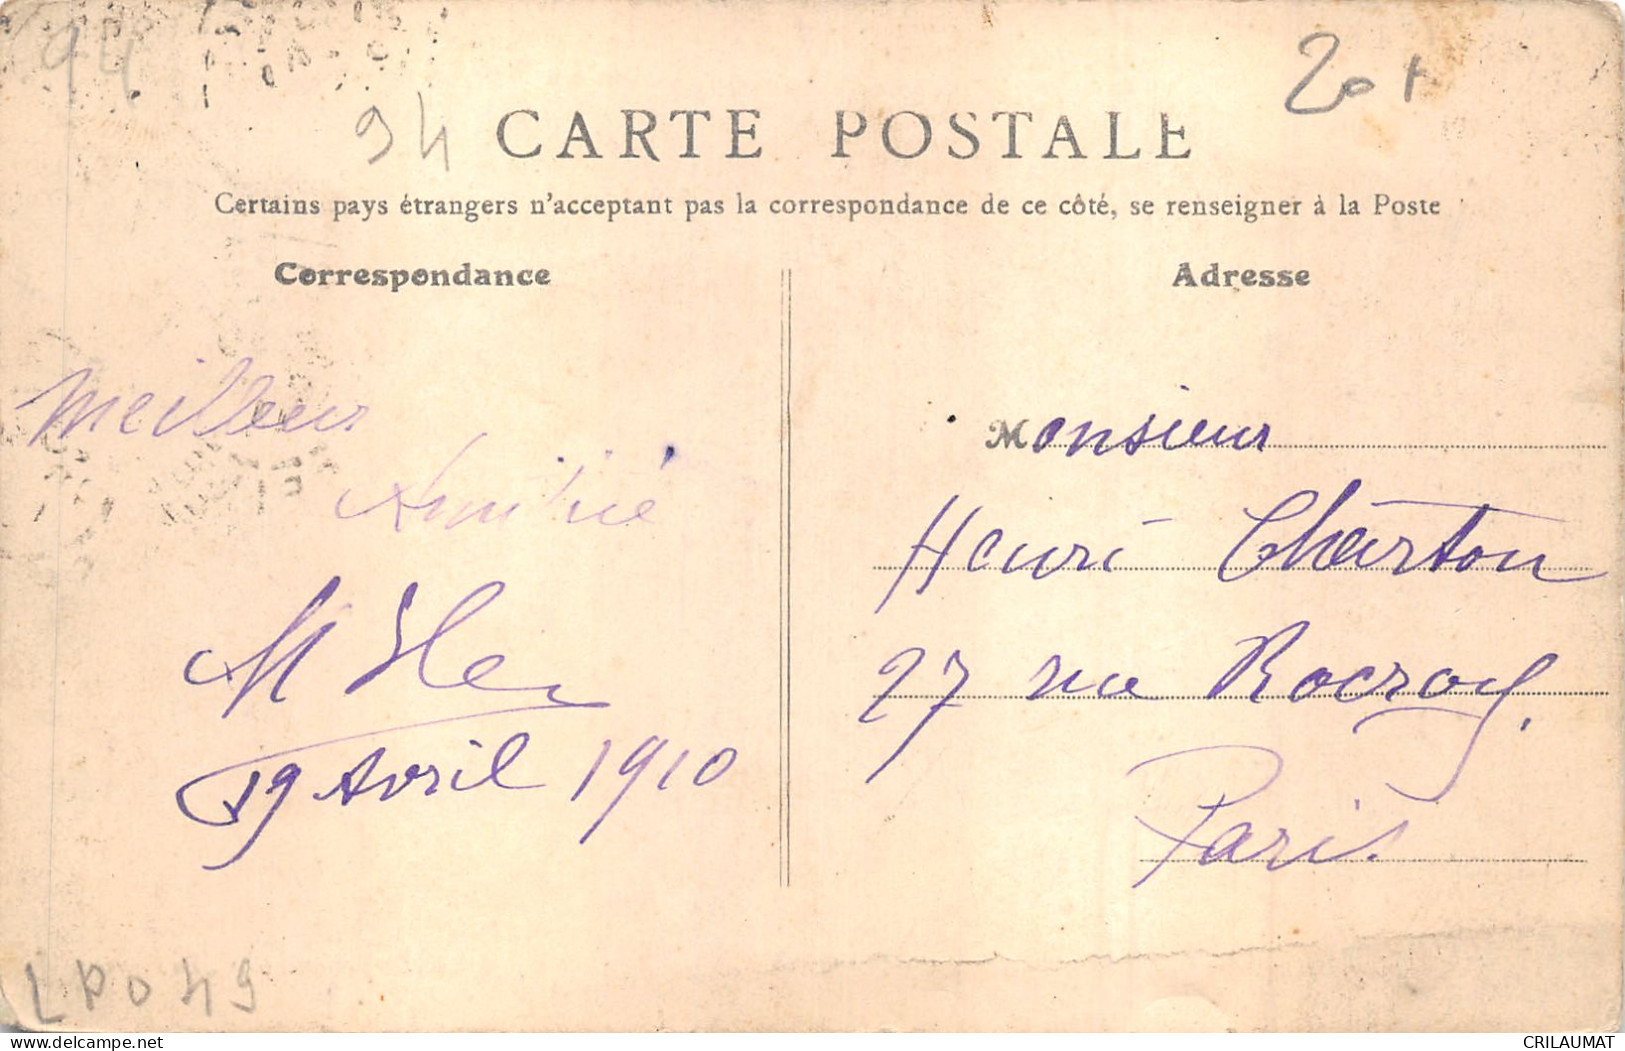 94
94
20 F
CARTE POSTALE
Certains pays étrangers n'acceptant pas la correspondance de ce côté, se renseigner à la Poste
Correspondance
Meilleur
Amitié
19 Avril 1910
Adresse
Monsieur
Henri Charton
27 rue Rocroy.
Paris.
LP049
www.delcampe.net
CRILAUMAT